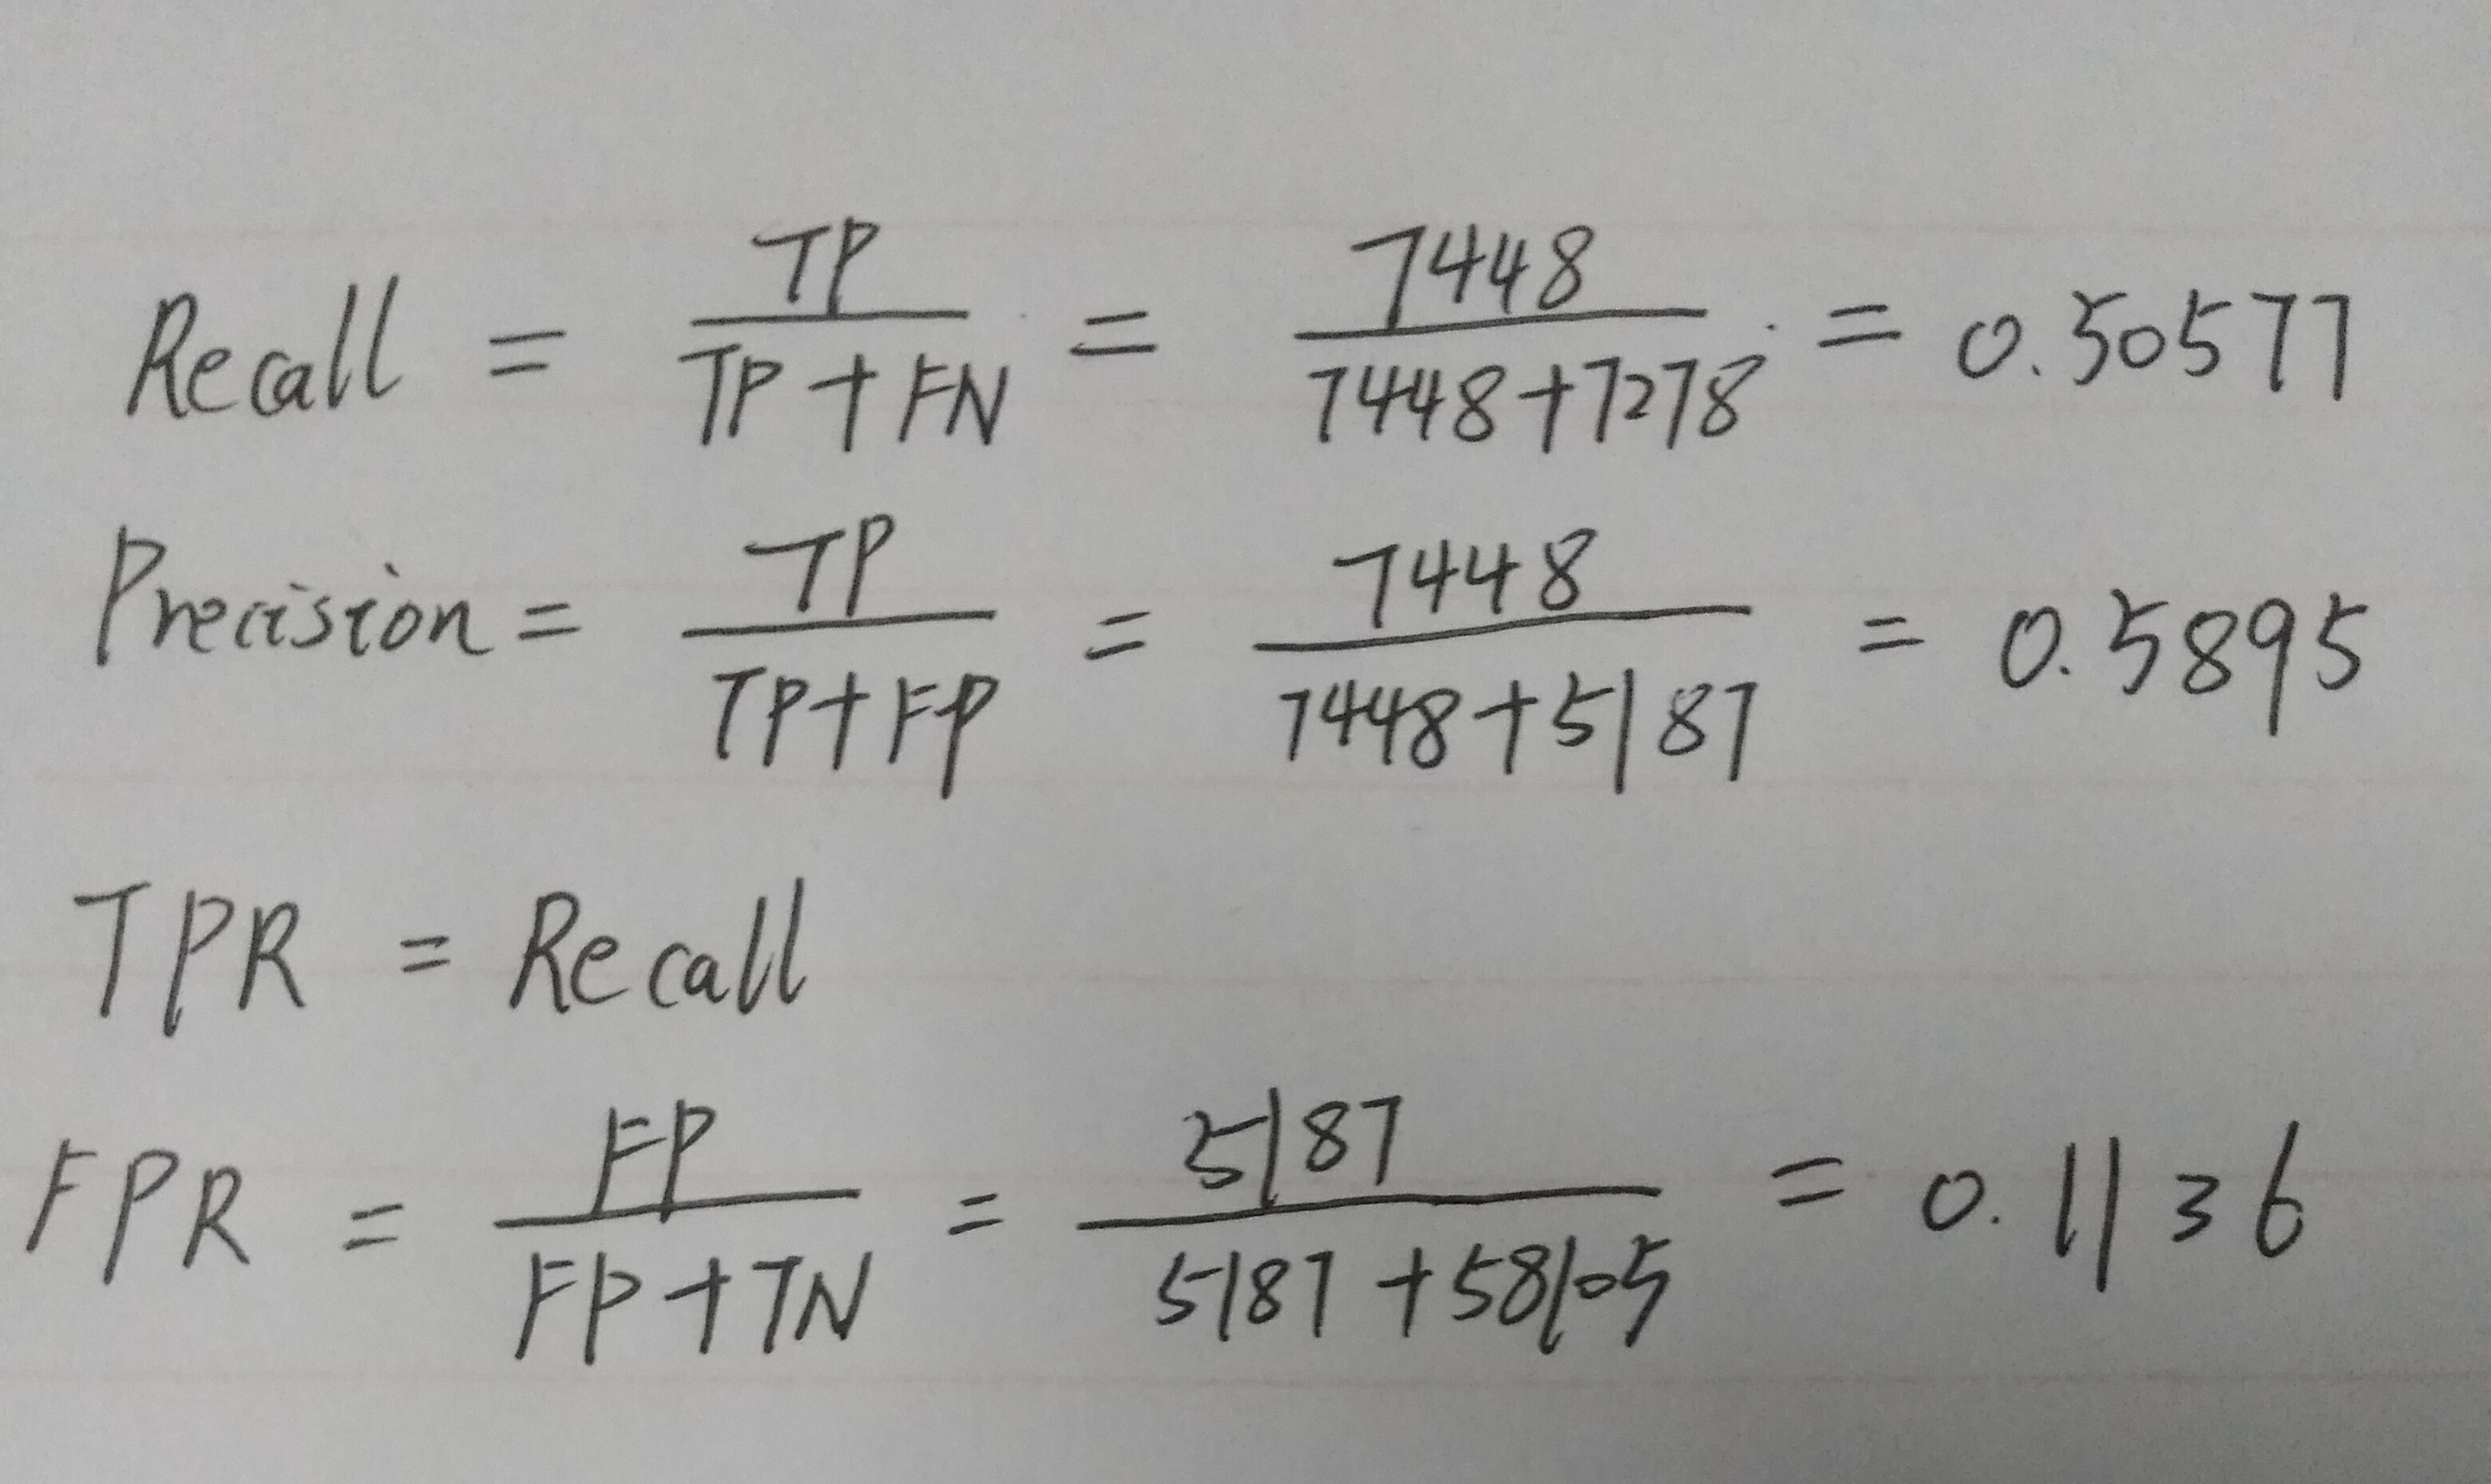 Recall = TP / TP + FN = 7448 / 7448+7278 = 0.50577
Precision = TP / TP+FP = 7448 / 7448+5187 = 0.5895
TPR = Recall
FPR = FP / FP+TN = 5187 / 5187+58105 = 0.1136